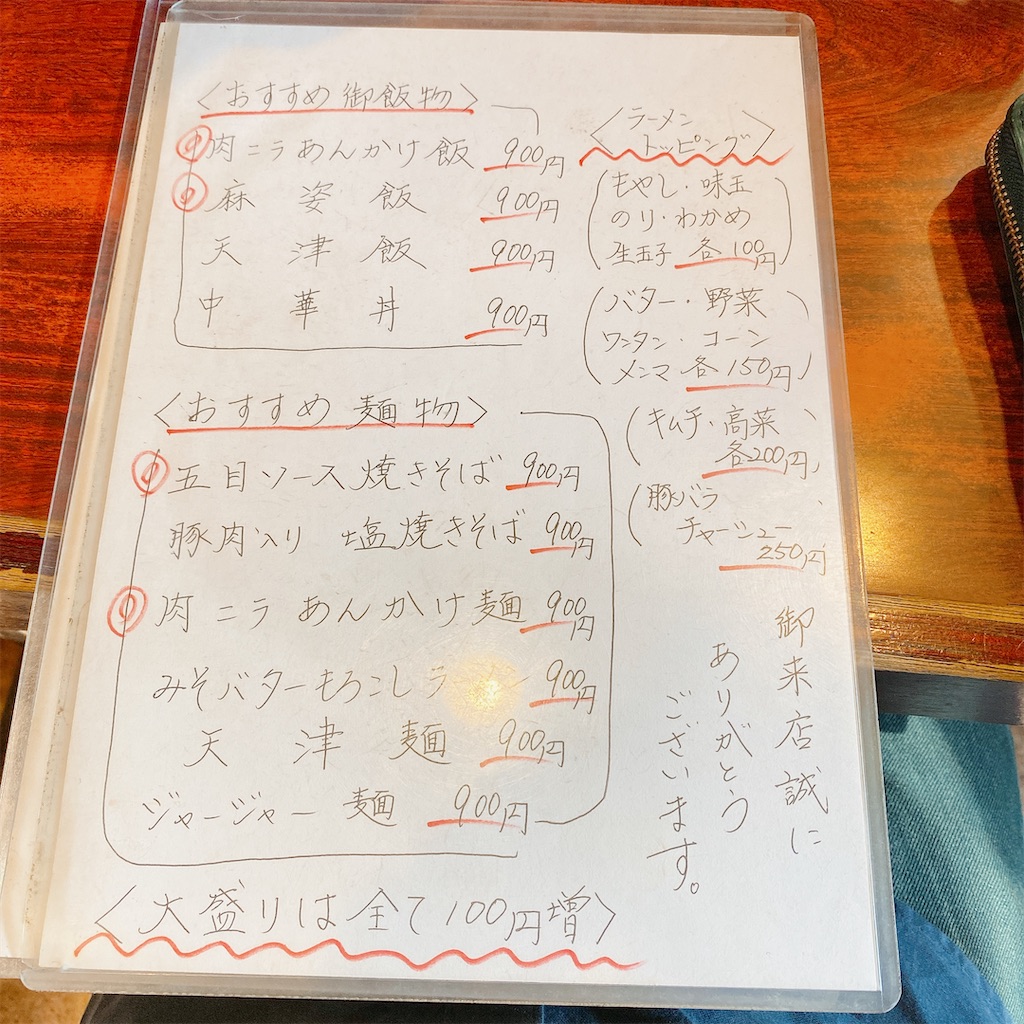 〈おすすめ 御飯物〉
肉ニラあんかけ飯 900円
麻婆飯 900円
天津飯 900円
中華丼 900円
〈おすすめ 麺物〉
五目ソース焼きそば 900円
豚肉入り 塩焼きそば 900円
肉ニラあんかけ麺 900円
みそバターもろこしラーメン 900円
天津麺 900円
ジャージャー麺 900円
〈大盛りは全て100円増〉
〈ラーメン
トッピング〉
(もやし・味玉
のり・わかめ
生玉子 各100円)
(バター・野菜
ワンタン・コーン
メンマ 各150円)
(キムチ・高菜
各200円)
(豚バラ
チャーシュー
250円)
御来店誠に
ありがとう
ございます。